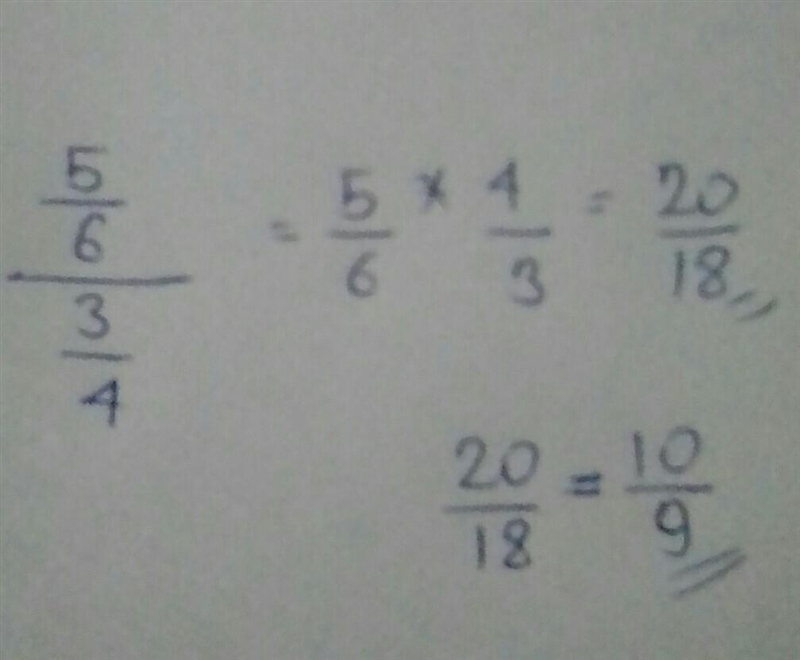 5/6 / 3/4 = 5/6 × 4/3 = 20/18
20/18 = 10/9